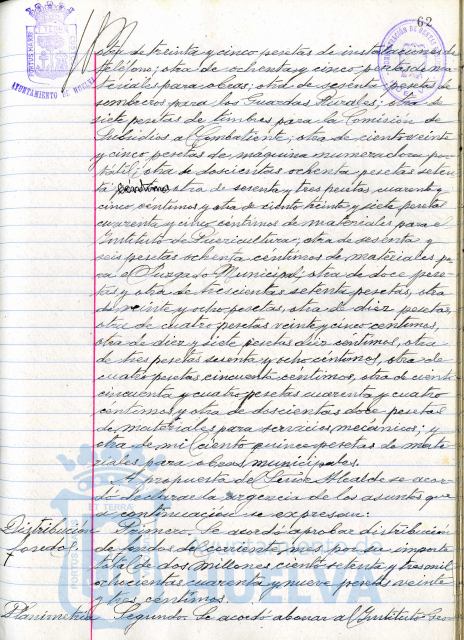 62
AYUNTAMIENTO DE HUELVA
otra de treinta y cinco pesetas de instalaciones de
teléfono; otra de ochenta y cinco pesetas de ma
teriales para obras; otra de sesenta pesetas de
sombreros para los Guardas Rurales; otra de
siete pesetas de timbres para la Comisión de
Subsidios al Combatiente; otra de ciento veinte
y cinco pesetas de maquina numeradora por
tátil; otra de doscientas ochenta pesetas seten
ta céntimos otra de sesenta y tres pesetas cuarenta y
cinco céntimos y otra de ciento treinta y siete pesetas
cuarenta y cinco céntimos de materiales para el
Instituto de Puericultura; otra de sesenta y
seis pesetas ochenta céntimos de materiales pa
ra el Juzgado Municipal, otra de doce pese-
tas y otra de trescientas setenta pesetas, otra
de veinte y ocho pesetas, otra de diez pesetas,
otra de cuatro pesetas veinte y cinco centimos,
otra de diez y siete pesetas diez centimos, otra
de tres pesetas sesenta y ocho céntimos, otra de
cuatro pesetas cincuenta céntimos, otra de ciento
cincuenta y cuatro pesetas cuarenta y cuatro
céntimos y otra de doscientas doce pesetas
de materiales para servicios mecánicos; y
otra de mil ciento quince pesetas de mate-
riales para obras municipales.
A propuesta del Señor Alcalde se acor-
dó declarar la urgencia de los asuntos que
a continuación se expresan:
Distribución fondos. Primero. Se acordó aprobar distribución
de fondos del corriente mes por su importe
total de dos millones ciento setenta y tres mil
ochocientas cuarenta y nueve pesetas veinte
y tres céntimos.
Planimetria Segundo. Se acordó abonar al Instituto Geo
HUELVA